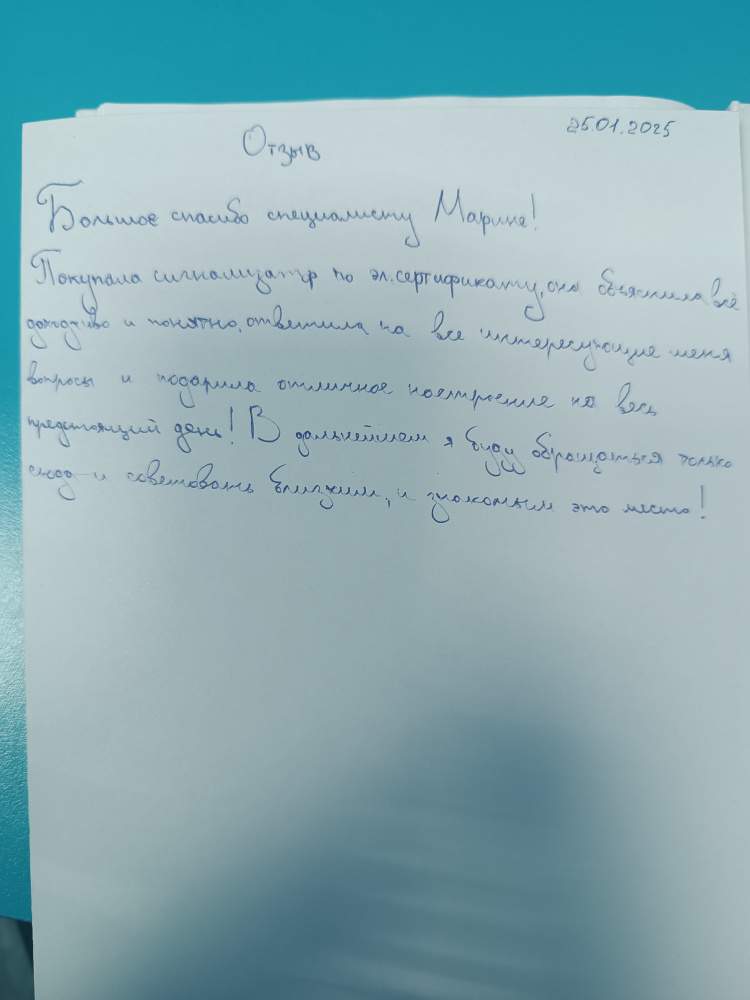 25.01.2025
Отзыв
Большое спасибо специалисту Марине!
Покупала сигнализатр по эл.сертификату, она объяснила всё
доходчиво и понятно, ответила на все интересующие меня
вопросы и подарила отличное настроение на весь
предстоящий день! В дальнейшем я буду обращаться только
сюда и советовать близким, и знакомым это место!